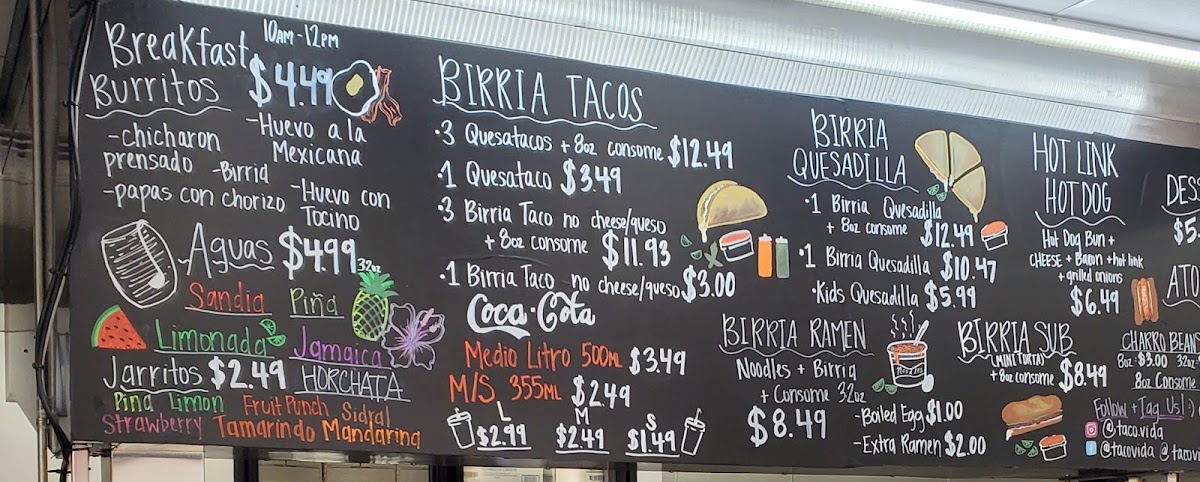 Breakfast 10AM-12PM
Burritos $4.49
-chicharon prensado
-Huevo a la Mexicana
-Birria
-papas con chorizo
-Huevo con Tocino
Aguas $4.99 32oz
Sandia Piña
Limonada Jamaica
Jarritos $2.49 HORCHATA
Piña Limon Fruit Punch Sidral
Strawberry Tamarindo Mandarina
BIRRIA TACOS
·3 Quesatacos + 8oz consome $12.49
·1 Quesataco $3.49
·3 Birria Taco no cheese/queso
+ 8oz consome $11.93
·1 Birria Taco no cheese/queso $3.00
Coca-Cola
Medio Litro 500ML $3.49
M/S 355ML $2.49
L M S
$2.99 $2.49 $1.49
BIRRIA
QUESADILLA
·1 Birria Quesadilla
+ 8oz consome $12.49
·1 Birria Quesadilla $10.47
·Kids Quesadilla $5.99
BIRRIA RAMEN
Noodles + Birria
+ Consome 32oz
$8.49
-Boiled Egg $1.00
-Extra Ramen $2.00
HOT LINK
HOT DOG
Hot Dog Bun +
CHEESE + Bacon + hot link
+ grilled onions
$6.49
BIRRIA SUB
(MINI TORTA)
+ 8oz consome $8.49
DESS
$5.
ATO
CHARRO BEANS
8oz $3.00 32oz
8oz Consome
Follow + Tag Us! :)
@taco.vida
@tacovida @tacovi